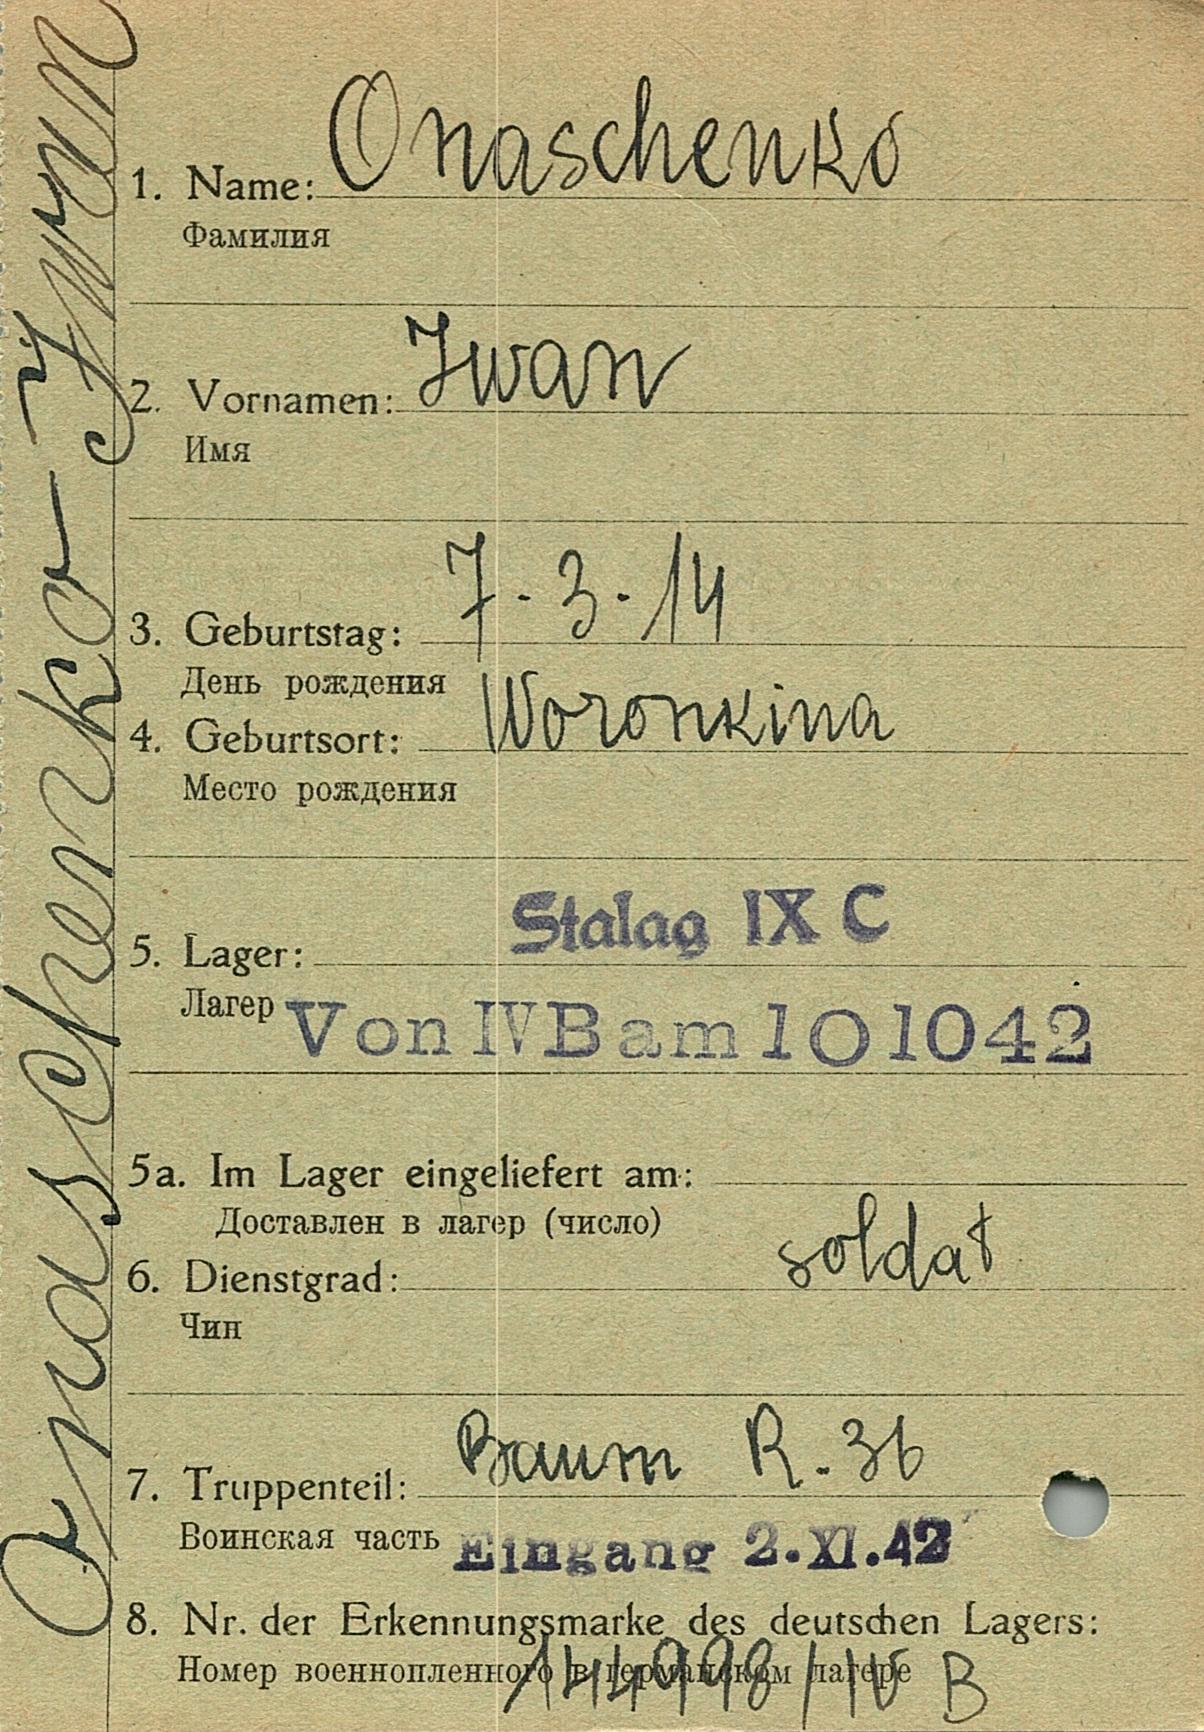 Onaschenko Iwan
1. Name: Onaschenko
Фамилия
2. Vornamen: Iwan
Имя
3. Geburtstag: 7.3.14
День рождения
4. Geburtsort: Woronkina
Место рождения
5. Lager: Stalag IX C
Лагер Von IV B am 101042
5a. Im Lager eingeliefert am:
Доставлен в лагер (число)
6. Dienstgrad: soldat
Чин
7. Truppenteil: Baum R. 36
Воинская часть Eingang 2.XI.42
8. Nr. der Erkennungsmarke des deutschen Lagers:
Номер военнопленного в германском лагере
144998/IV B